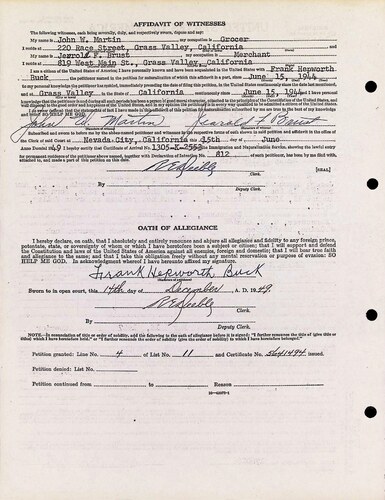 AFFIDAVIT OF WITNESSES
The following witnesses, each being severally, duly, and respectively sworn, depose and say:
My name is John W. Martin, my occupation is Grocer
I reside at 220 Race Street, Grass Valley, California
My name is F. Brust, my occupation is Merchant
I reside at 819 West Main St., Grass Valley, California
I am a citizen of the United States of America; I have personally known and have been acquainted in the United States with Frank Hepworth
Buck, the petitioner named in the petition for naturalization of which this affidavit is a part, since June 15, 1944
to my personal knowledge the petitioner has resided, immediately preceding the date of filing this petition, in the United States continuously since the date last mentioned,
and at Grass Valley, in the State of California continuously since June 15, 1944
SO HELP ME GOD.
John W. Martin F Brust
Subscribed and sworn to before me by the above-named petitioner and witnesses in the respective forms of oath shown in said petition and affidavit in the office of the
Clerk of said Court at Nevada City, California this 15th day of June
Anno Domini 1949 I hereby certify that Certificate of Arrival No. from the Immigration and Naturalization Service, showing the lawful entry
for permanent residence of the petitioner above named, together with Declaration of Intention No. 812 of such petitioner, has been by me filed with,
attached to, and made a part of this petition on this date.
Clerk. [SEAL]
By Deputy Clerk.
OATH OF ALLEGIANCE
I hereby declare, on oath, that I absolutely and entirely renounce and abjure all allegiance and fidelity to any foreign prince,
potentate, state, or sovereignty of whom or which I have heretofore been a subject or citizen; that I will support and defend
the Constitution and laws of the United States of America against all enemies, foreign and domestic; that I will bear true faith
and allegiance to the same; and that I take this obligation freely without any mental reservation or purpose of evasion: SO
HELP ME GOD. In acknowledgment whereof I have hereunto affixed my signature.
Frank Hepworth Buck
Sworn to in open court, this 17th day of December, A. D. 1949.
Clerk.
By
Deputy Clerk.
NOTE.—In renunciation of title or order of nobility, add the following to the oath of allegiance before it is signed: "I further renounce the title of (give title or
titles) which I have heretofore held," or "I further renounce the order of nobility (give the order of nobility) to which I have heretofore belonged."
Petition granted: Line No. 4 of List No. 11 and Certificate No. issued.
Petition denied: List No.
Petition continued from to Reason